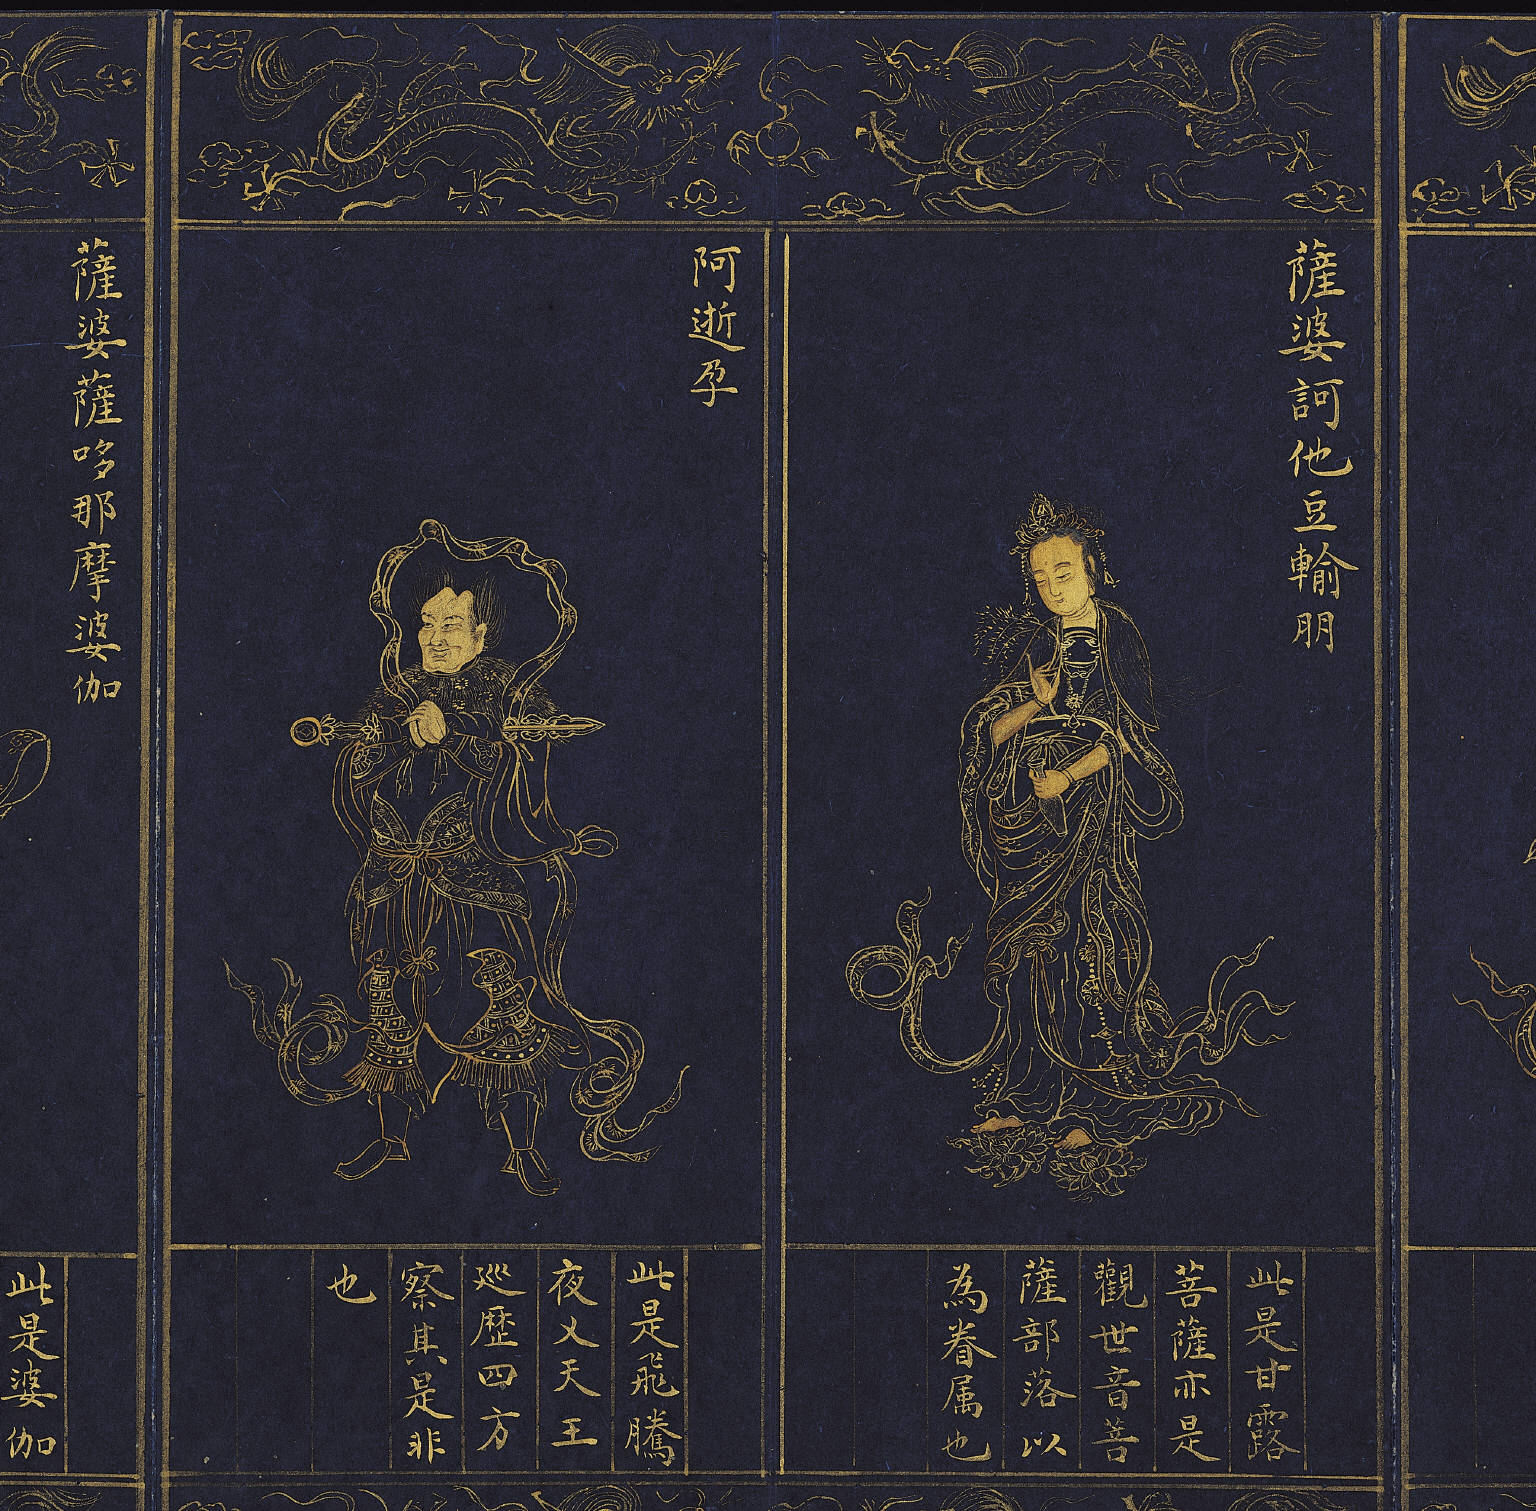 薩婆訶他豆輸朋
此是甘露
菩薩亦是
觀世音菩
薩部落以
為眷属也
阿逝孕
此是飛騰
夜叉天王
巡歷四方
察其是非
也
薩婆薩哆那摩婆伽
此是婆伽